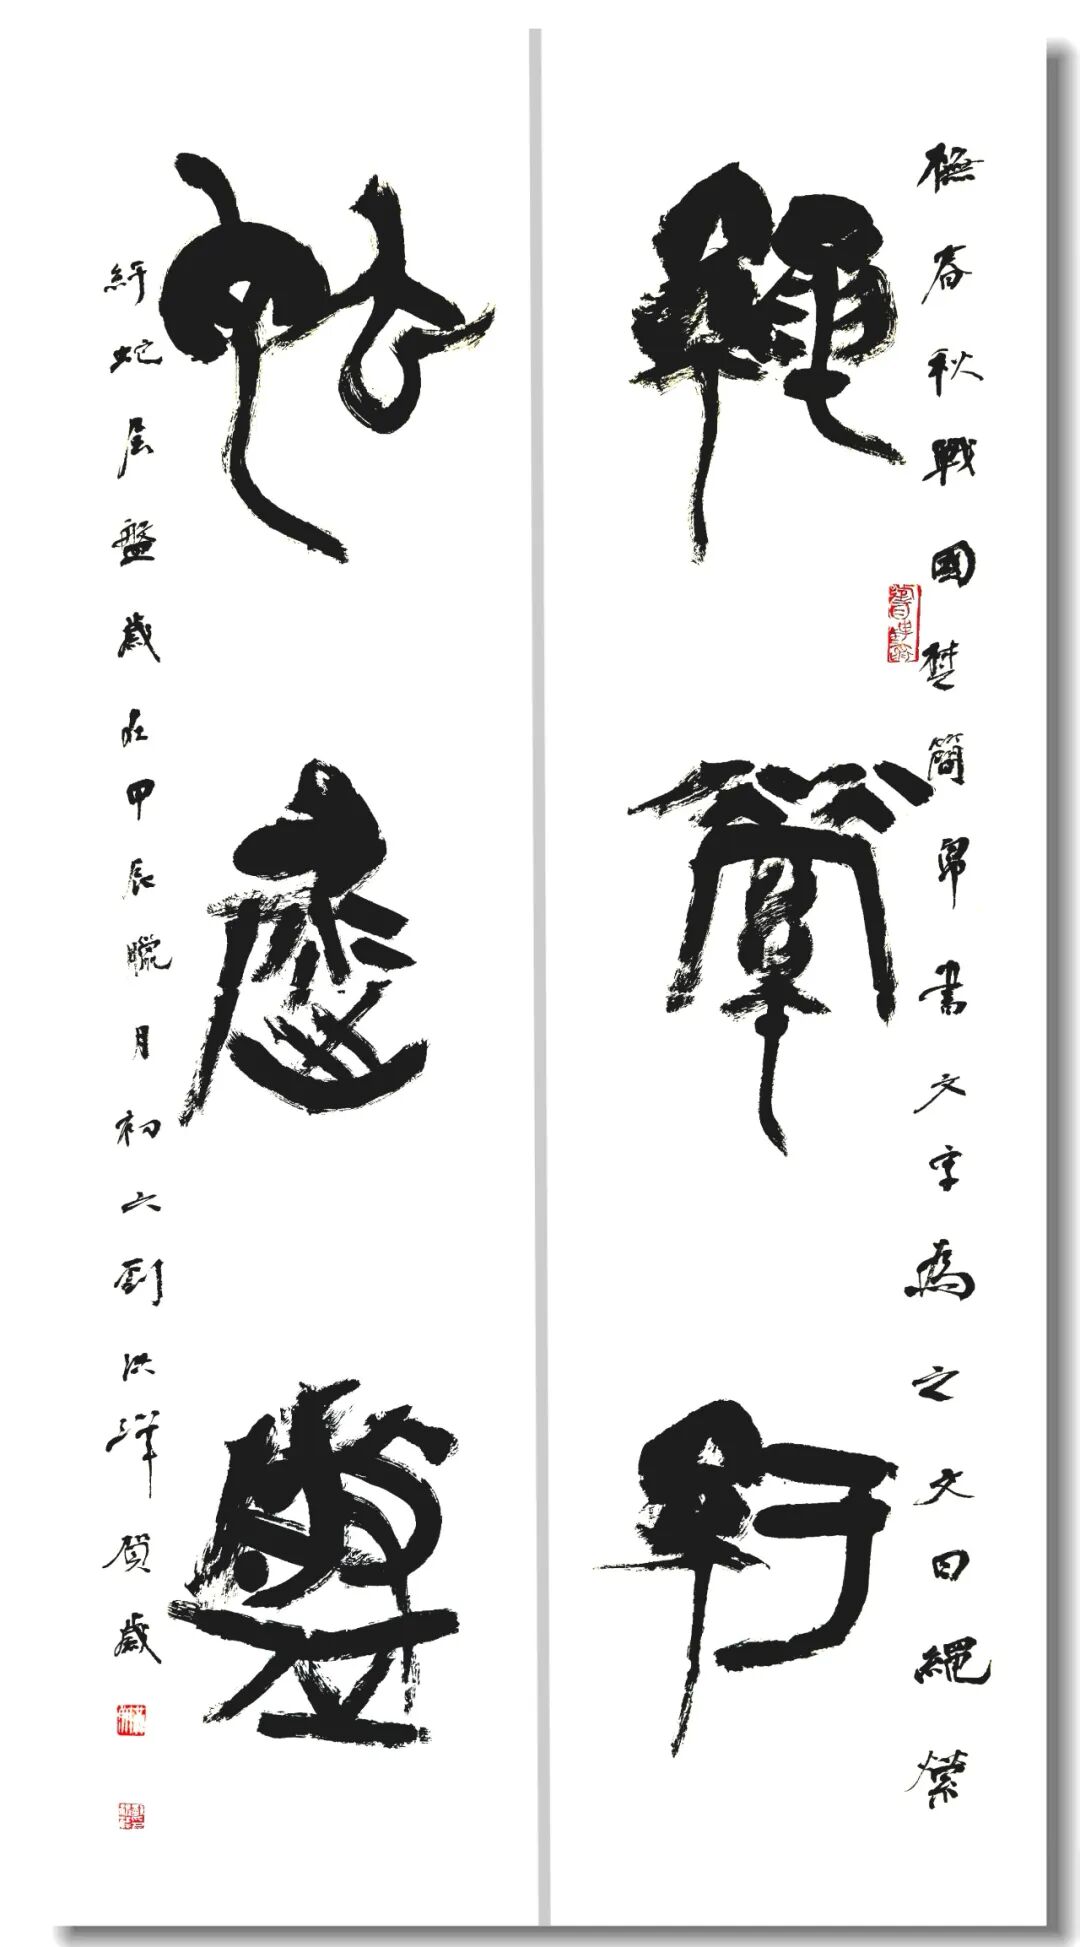 撫春秋戰國楚簡帛書文字為之文曰繩縈
繩縈紆
蛇屈盤
紆蛇屈盤歲在甲辰臘月初六劉洪洋賀歲